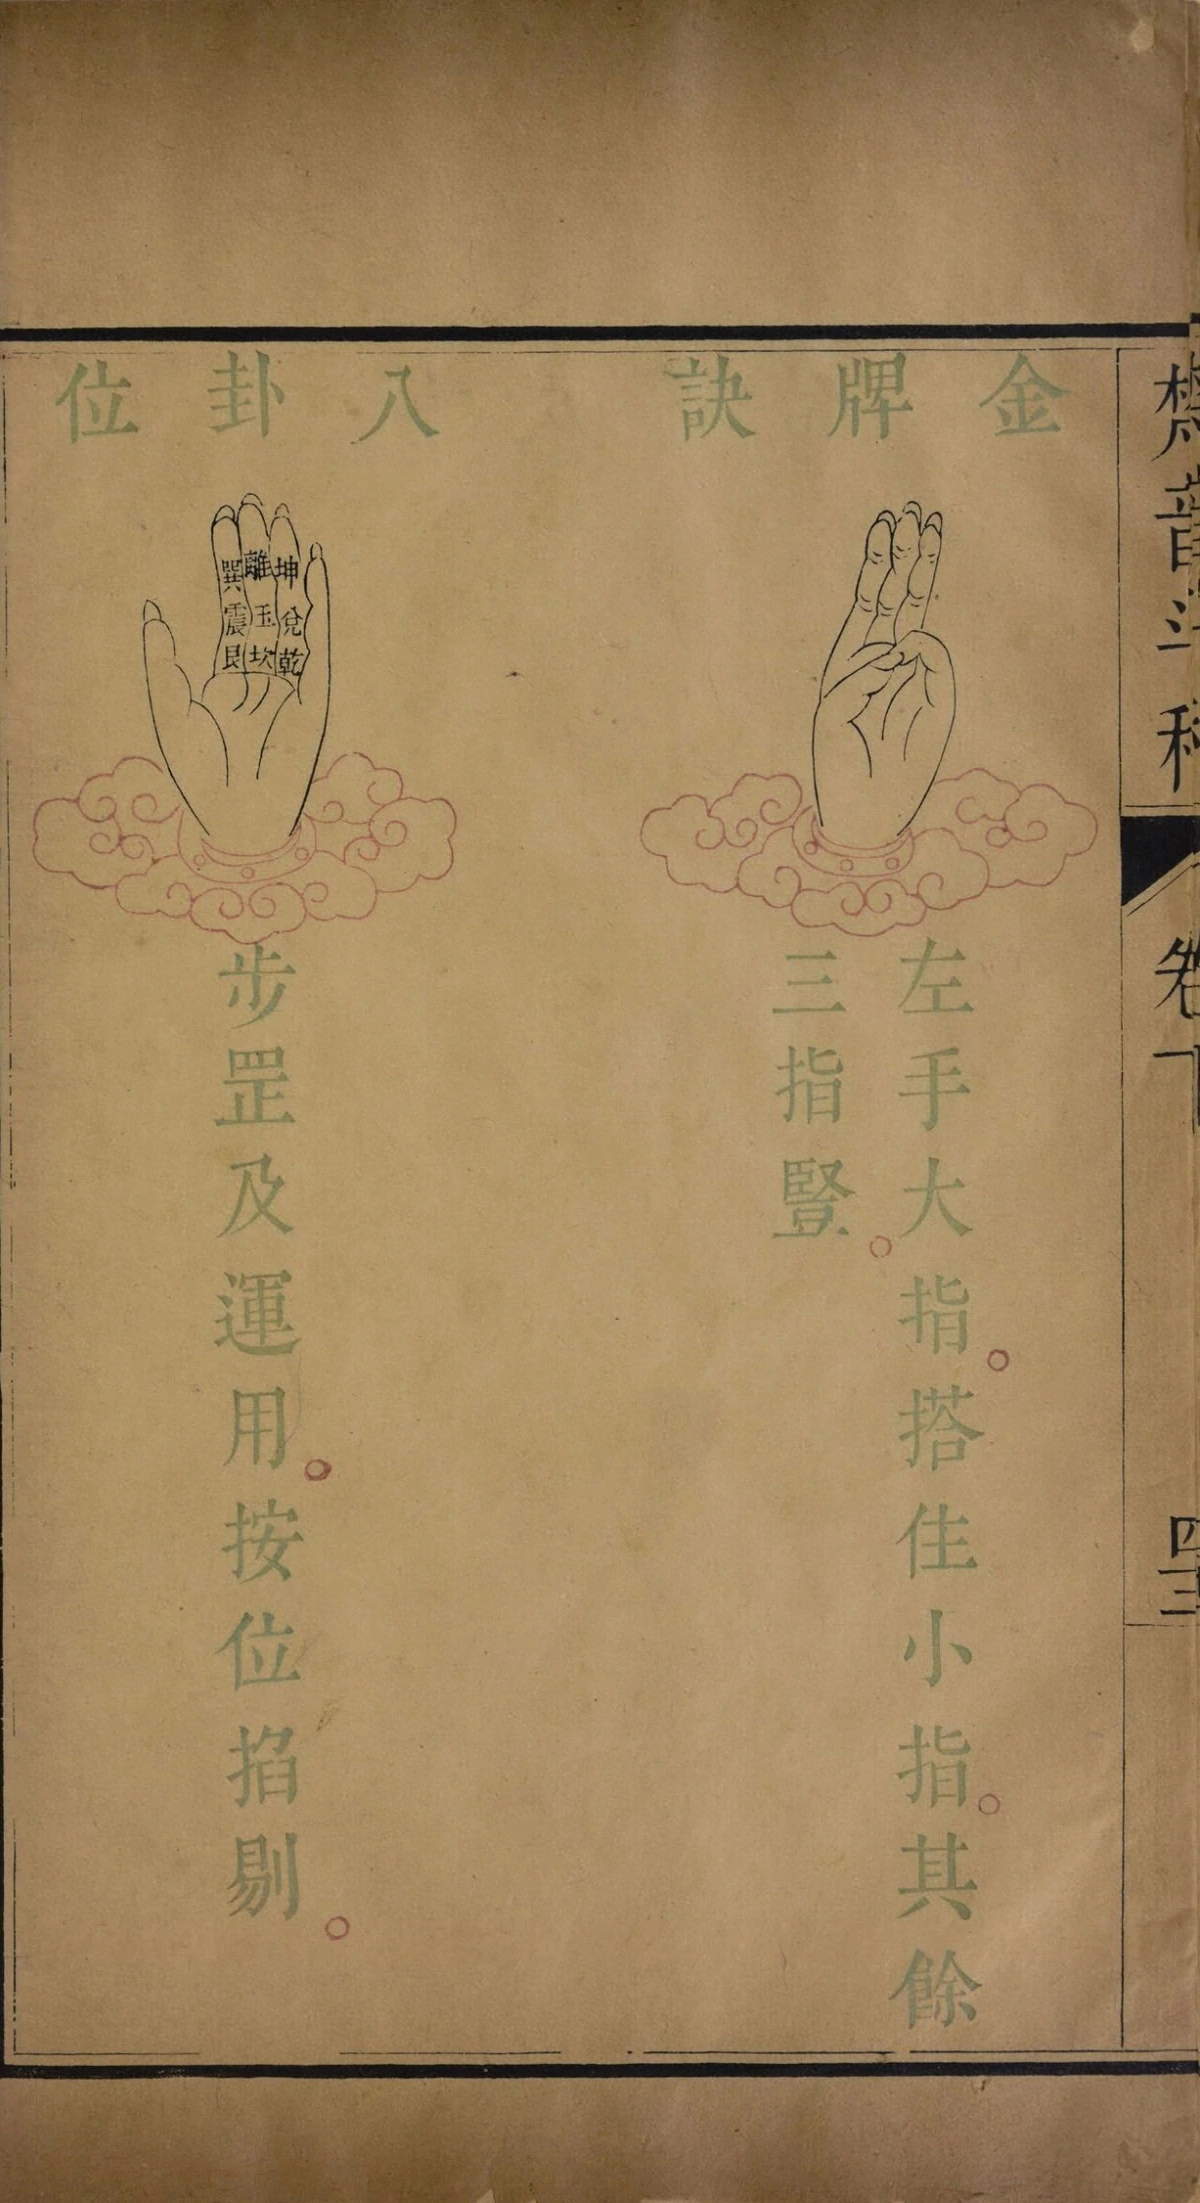 梵音斗科
卷下
四三
金牌訣
左手大指。搭住小指。其餘
三指豎。
八卦位
坤兌乾
離玉坎
巽震艮
步罡及運用。按位掐剔。